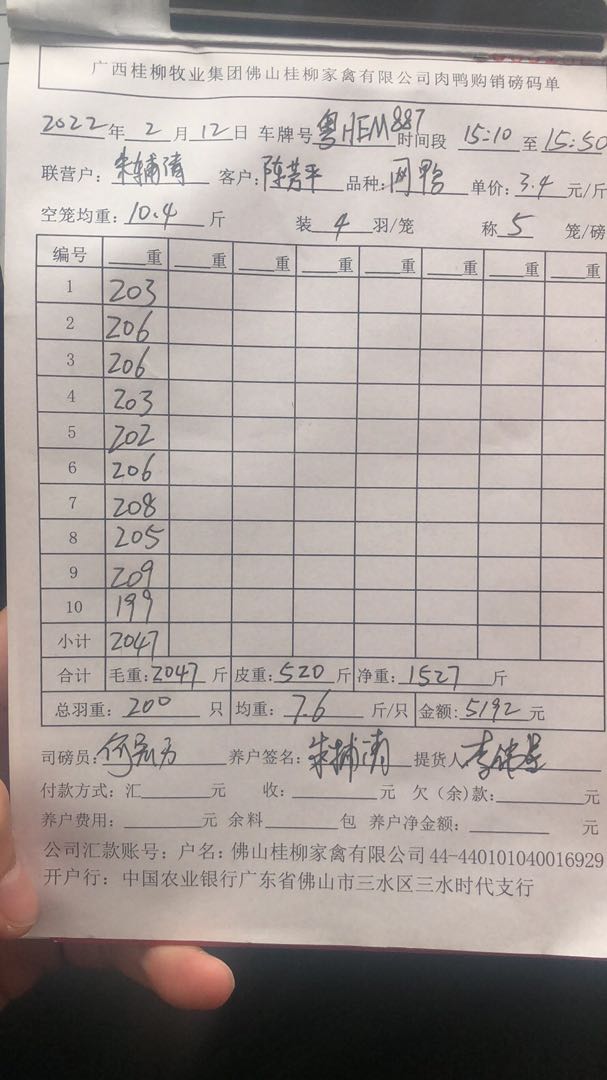 广西桂柳牧业集团佛山桂柳家禽有限公司肉鸭购销磅码单
2022年2月12日 车牌号粤HEM887时间段 15:10至15:50
联营户:朱辅清 客户:陈芳平 品种: 单价:3.4元/斤
空笼均重:10.4斤 装4羽/笼 称5笼/磅
编号 重 重 重 重 重 重 重 重
1 203
2 206
3 206
4 203
5 202
6 206
7 208
8 205
9 209
10 199
小计 2047
合计 毛重:2047斤 皮重:520斤 净重:1527斤
总羽重:200只 均重:7.6斤/只 金额:5192元
司磅员: 养户签名:朱辅清 提货人
付款方式:汇 元 收: 元 欠(余)款: 元
养户费用: 元 余料 包 养户净金额: 元
公司汇款账号:户名:佛山桂柳家禽有限公司44-440101040016929
开户行:中国农业银行广东省佛山市三水区三水时代支行